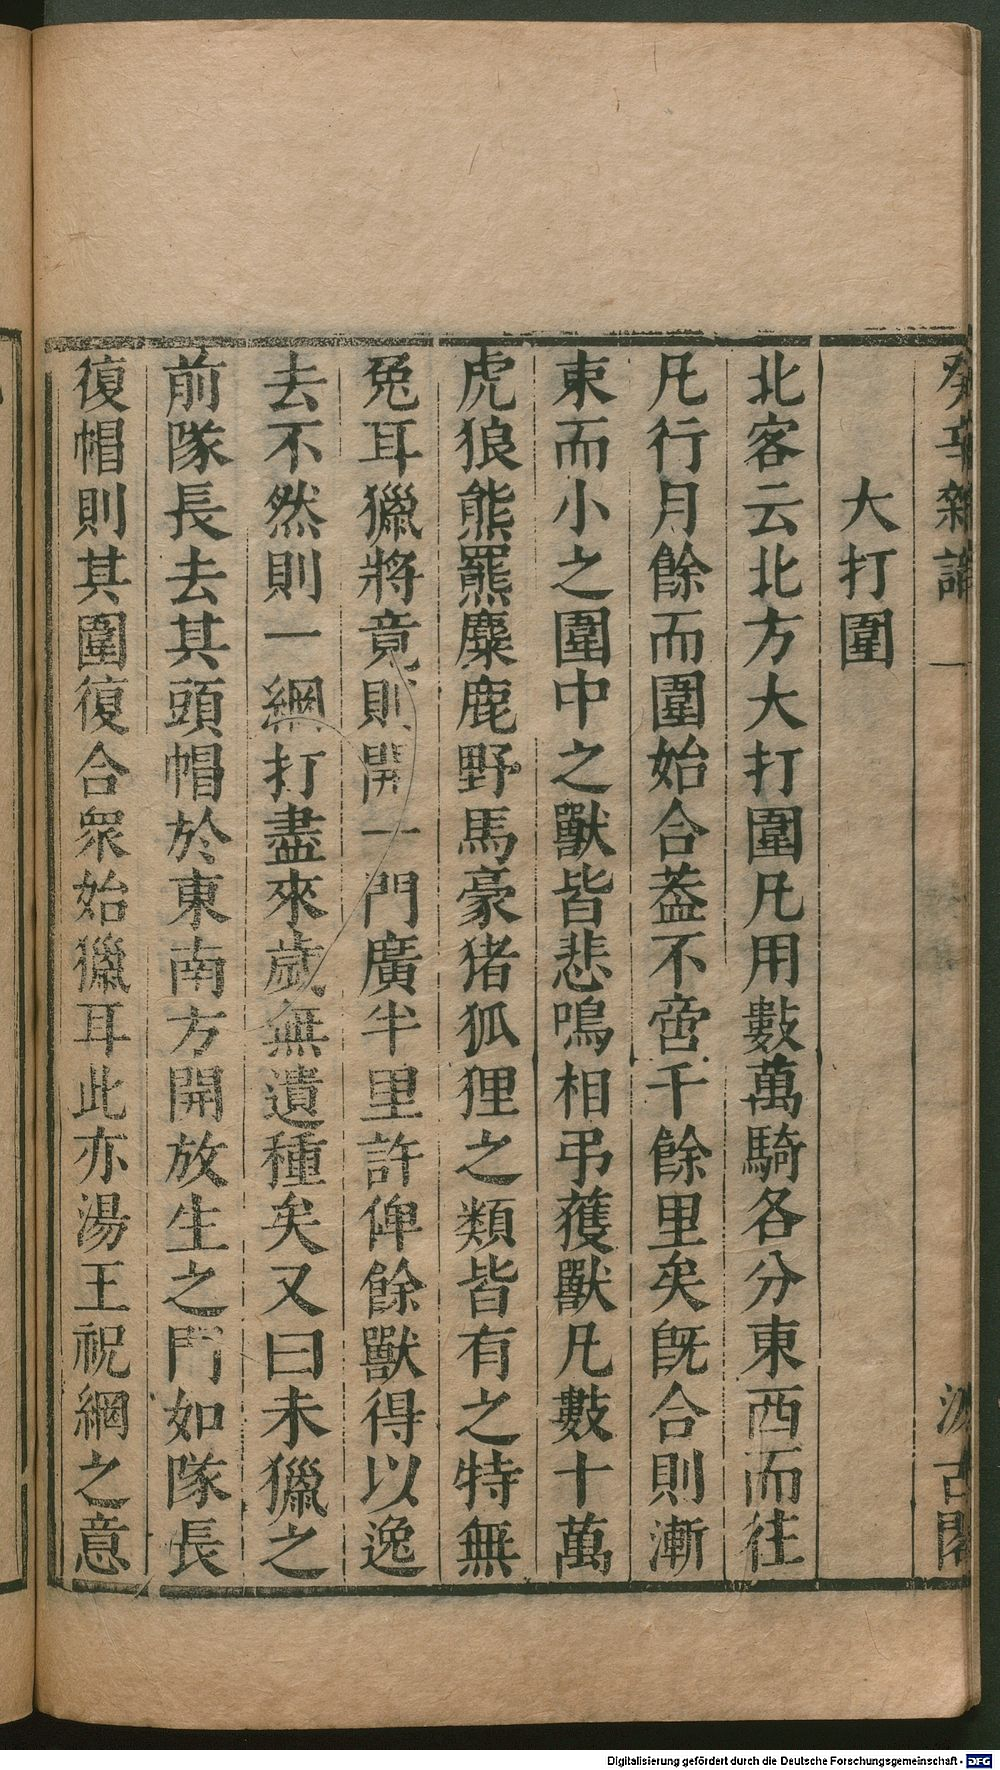 癸辛雜識 一 汲古閣
大打圍
北客云北方大打圍凡用數萬騎各分東西而往
凡行月餘而圍始合葢不啻千餘里矣旣合則漸
束而小之圍中之獸皆悲鳴相弔獲獸凡數十萬
虎狼熊羆麋鹿野馬豪猪狐狸之類皆有之特無
兔耳獵將竟則開一門廣半里許俾餘獸得以逸
去不然則一網打盡來歲無遺種矣又曰未獵之
前隊長去其頭帽於東南方開放生之門如隊長
復帽則其圍復合眾始獵耳此亦湯王祝網之意
Digitalisierung gefördert durch die Deutsche Forschungsgemeinschaft - DFG